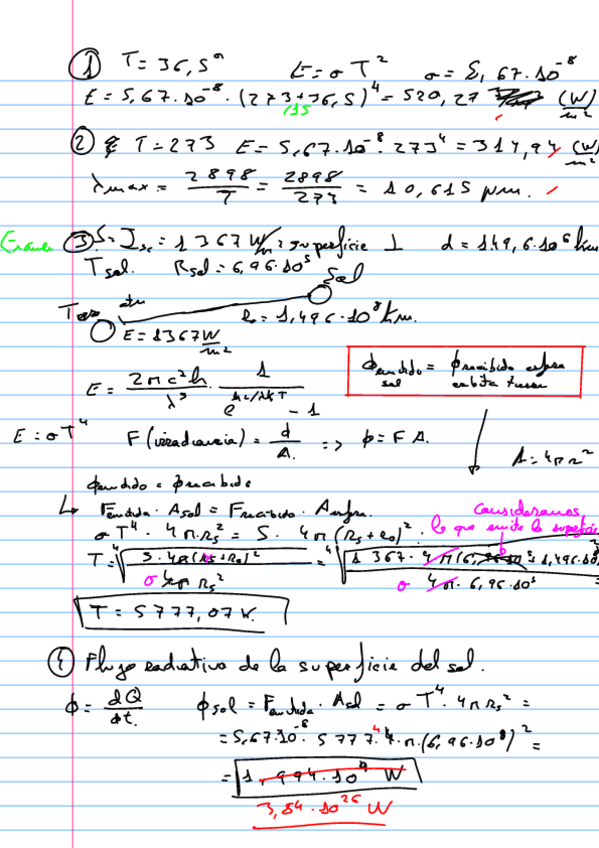 ① T = 36,5° E = σ T² σ = 5,67·10⁻⁸
E = 5,67·10⁻⁸ · (273+36,5)⁴ = 520,27 (W/m²)
② T = 273 E = 5,67·10⁻⁸ · 273⁴ = 314,94 (W/m²)
λmax = 2898/T = 2898/273 = 10,615 μm.
③ S = Isc = 1367 W/m² superficie ⊥ d = 149,6·10⁶ km
T sol. Rsol = 6,96·10⁵
Sol
atm
R = 1,496·10⁸ km.
E = 1367 W/m²
E = 2πc²h/λ⁵ · 1/(e^(hc/λkT) - 1)
ϕemitido sol = ϕrecibido esfera orbita terrestre
E = σT⁴ F (irradiancia) = ϕ/A. => ϕ = F A.
A = 4πr²
ϕemitido = ϕrecibido
↳ Femitida · Asol = Frecibido · Aesfera.
Consideramos
lo que emite la superficie
σ T⁴ · 4π·Rs² = S · 4π (Rs+ro)².
T = ⁴√(S·4π(Rs+ro)²/σ4πRs²) =
T = 5777,07 K.
④ Flujo radiativo de la superficie del sol.
ϕ = dQ/dt. ϕsol = Femitida · Asol = σ T⁴ · 4πRs² =
= 5,67·10⁻⁸ · 5777⁴ · 4·π·(6,96·10⁸)² =
3,84·10²⁶ W